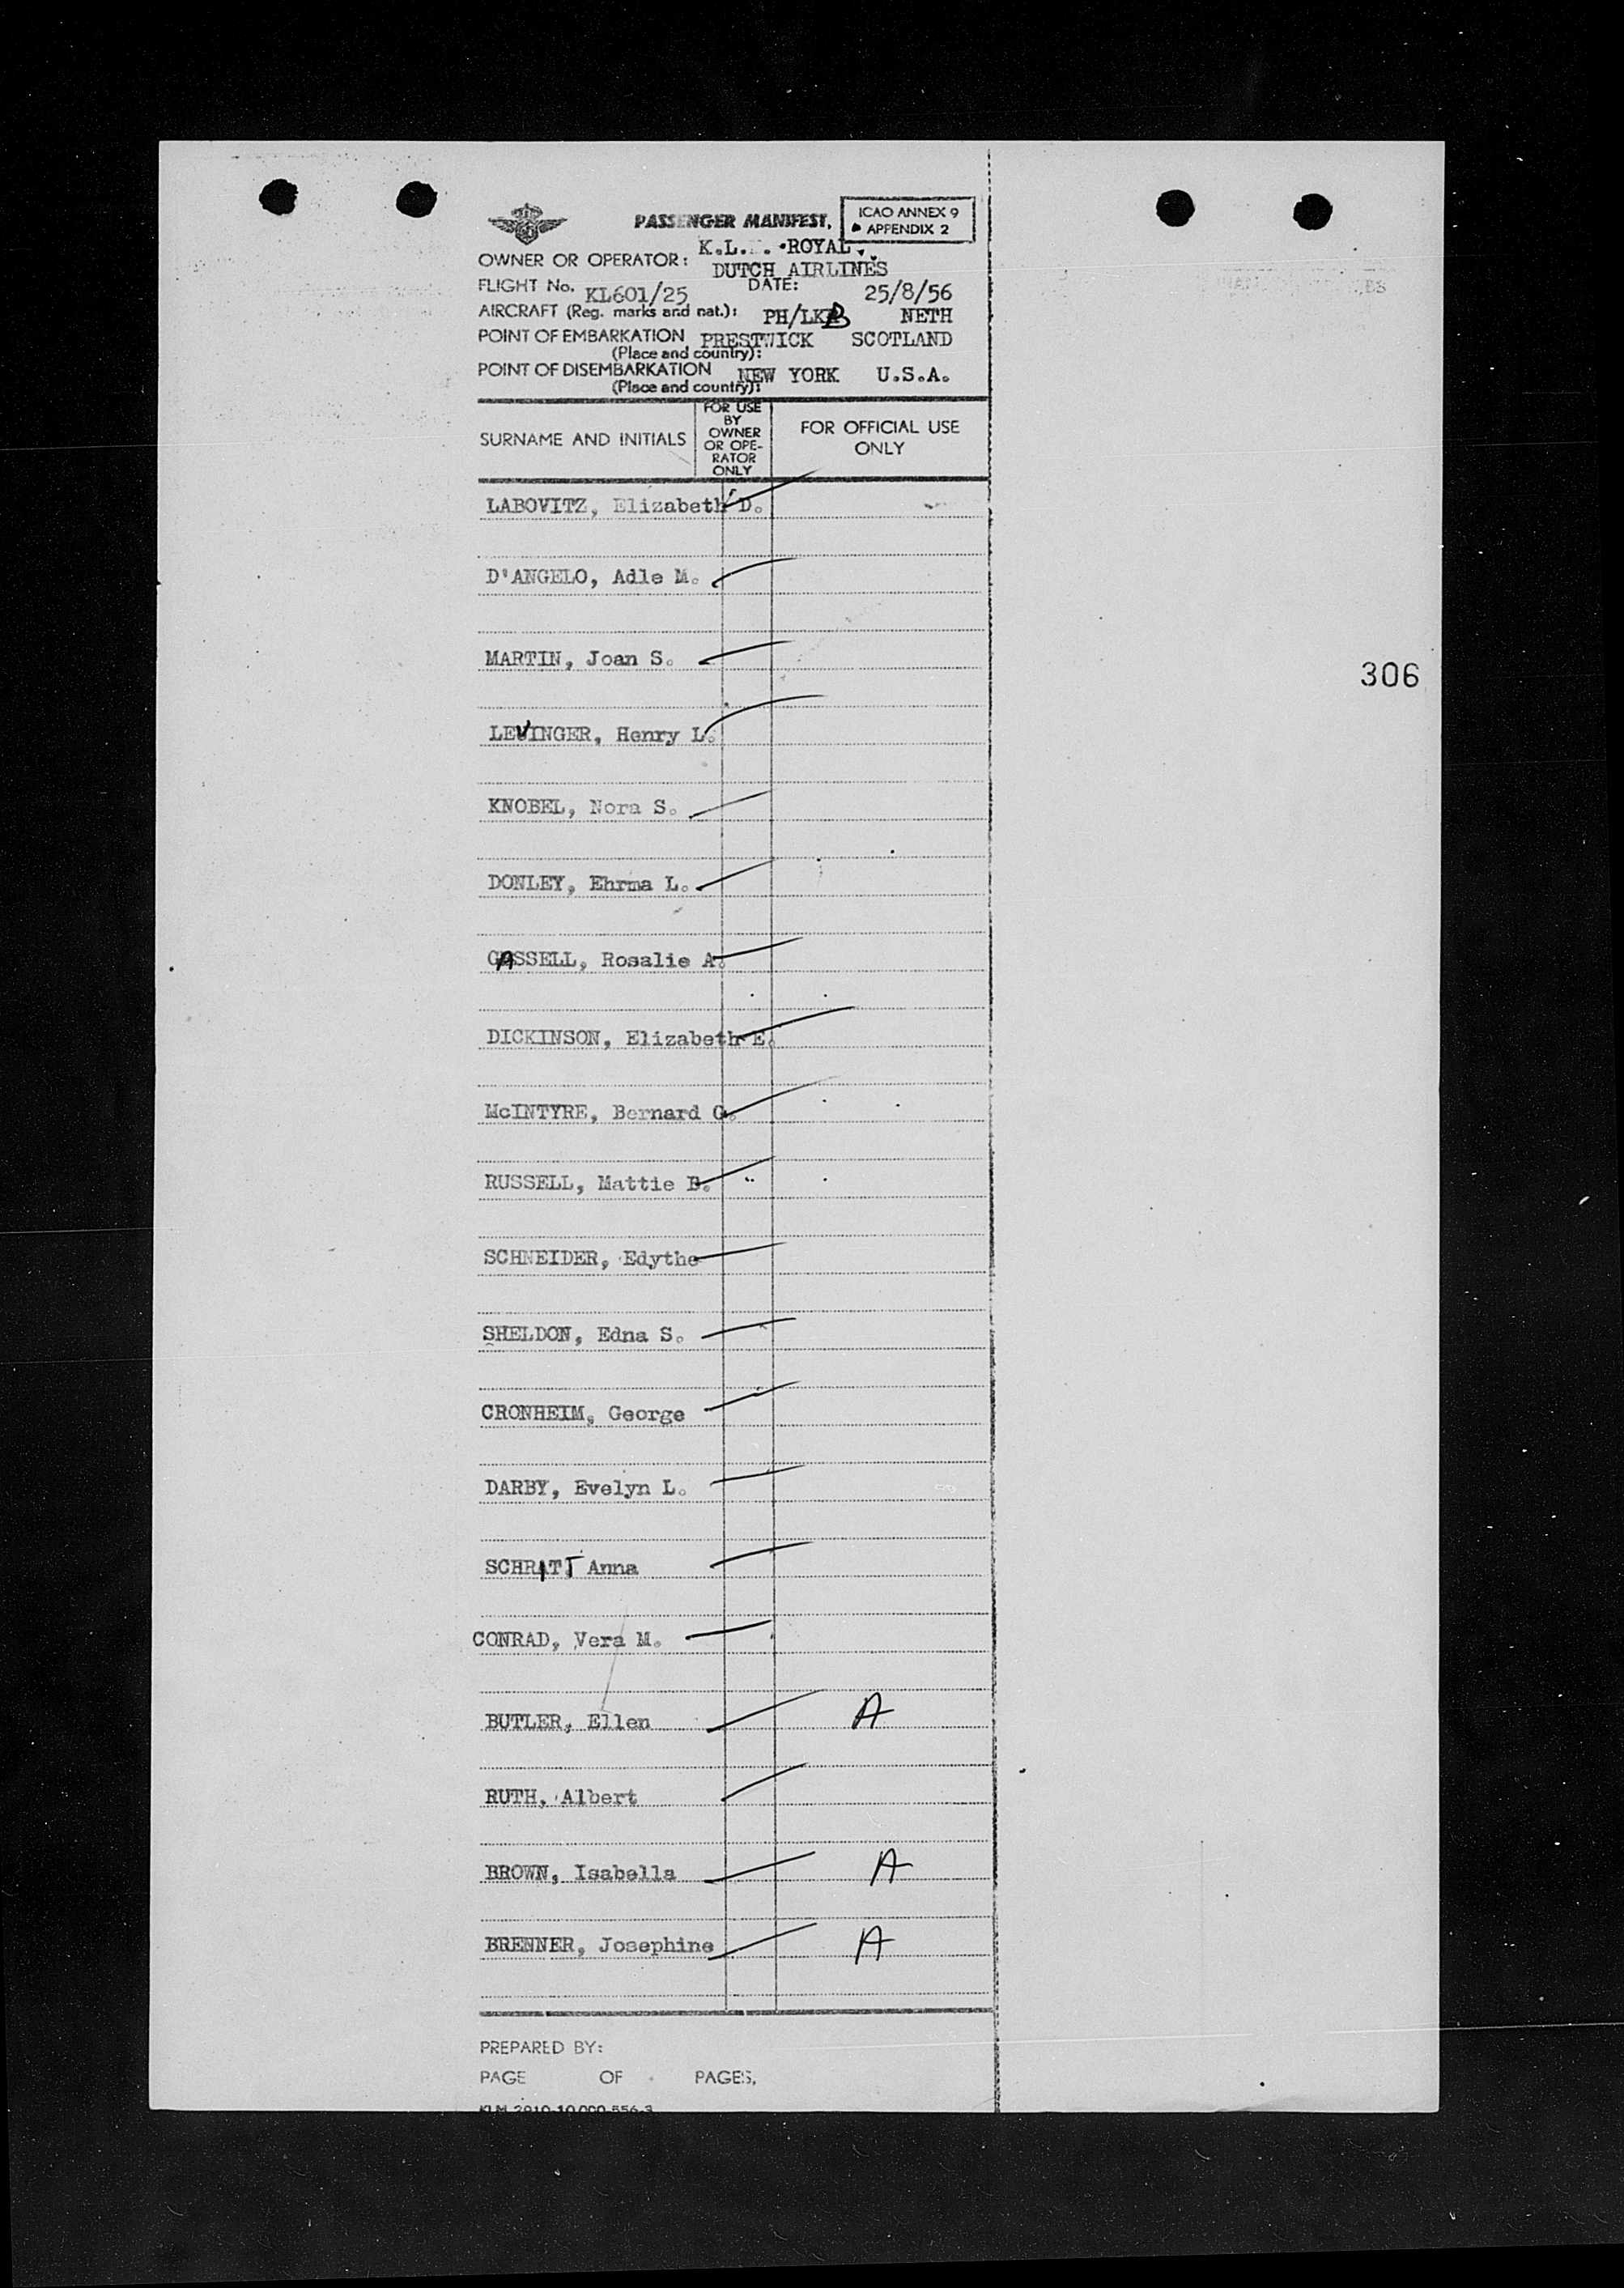 PASSENGER MANIFEST,
ICAO ANNEX 9
APPENDIX 2
OWNER OR OPERATOR: K.L. . ROYAL
DUTCH AIRLINES
FLIGHT No. KL601/25 DATE: 25/8/56
AIRCRAFT (Reg. marks and nat.): PH/LKB NETH
POINT OF EMBARKATION PRESTWICK SCOTLAND
(Place and country):
POINT OF DISEMBARKATION NEW YORK U.S.A.
(Place and country):
SURNAME AND INITIALS
FOR USE
BY
OWNER
OR OPE-
RATOR
ONLY
FOR OFFICIAL USE
ONLY
LABOVITZ, Elizabeth D.
D'ANGELO, Adle M.
MARTIN, Joan S.
306
LEVINGER, Henry L.
KNOBEL, Nora S.
DONLEY, Ehrma L.
GASSELL, Rosalie A.
DICKINSON, Elizabeth E.
McINTYRE, Bernard G.
RUSSELL, Mattie B.
SCHNEIDER, Edythe
SHELDON, Edna S.
CRONHEIM, George
DARBY, Evelyn L.
SCHRATT Anna
CONRAD, Vera M.
BUTLER, Ellen A
RUTH, Albert
BROWN, Isabella A
BRENNER, Josephine A
PREPARED BY:
PAGE OF PAGES,
KLM 2910-10.000-556-3